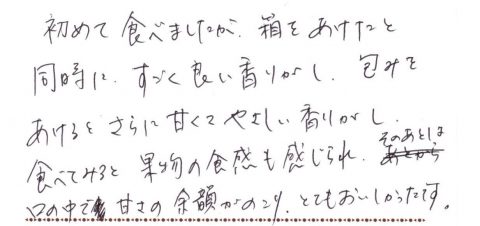 初めて食べましたが、箱をあけたと
同時に、すごく良い香りがし、包みを
あけるとさらに甘くてやさしい香りがし、
食べてみると果物の食感も感じられ、そのあとは
口の中で甘さの余韻がのこり、とてもおいしかったです。